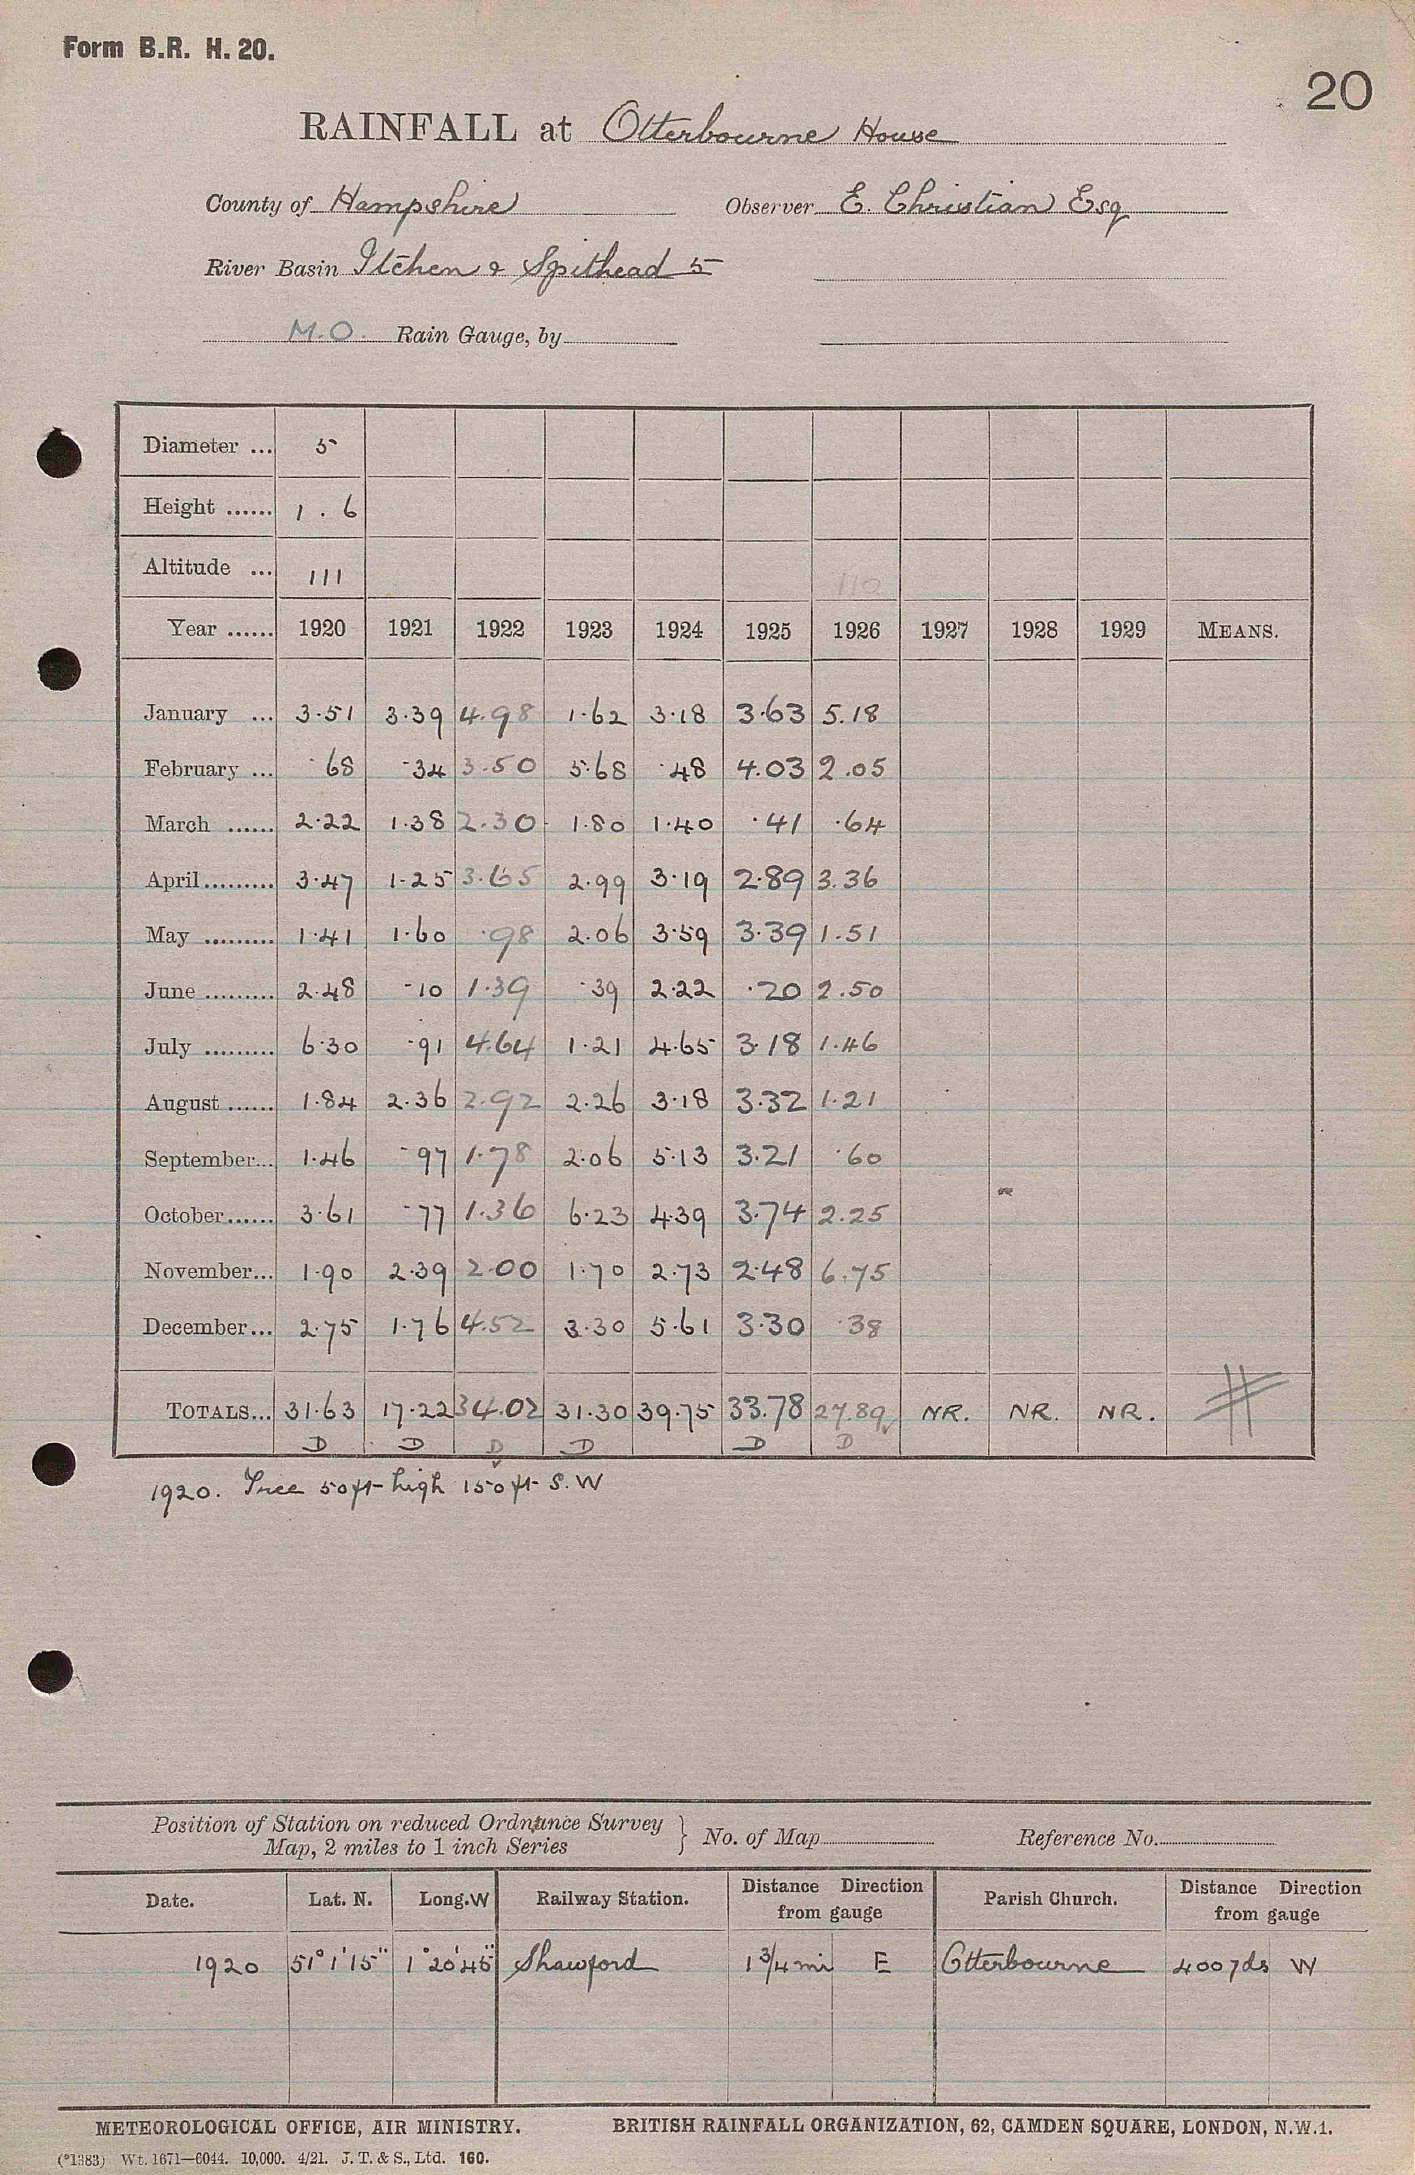 Form B.R. H. 20.
20
RAINFALL at Otterbourne House
County of Hampshire Observer E. Christian Esq
River Basin Itchen & Spithead 5
M.O. Rain Gauge, by
Diameter ... 5
Height ...... 1 . 6
Altitude ... 111 110
Year ...... 1920 1921 1922 1923 1924 1925 1926 1927 1928 1929 MEANS.
January ... 3.51 3.39 4.98 1.62 3.18 3.63 5.18
February ... .68 .34 3.50 5.68 .48 4.03 2.05
March ...... 2.22 1.38 2.30 1.80 1.40 .41 .64
April......... 3.47 1.25 3.65 2.99 3.19 2.89 3.36
May ......... 1.41 1.60 .98 2.06 3.59 3.39 1.51
June ......... 2.48 .10 1.39 .39 2.22 .20 2.50
July ......... 6.30 .91 4.64 1.21 4.65 3.18 1.46
August ...... 1.84 2.36 2.92 2.26 3.18 3.32 1.21
September... 1.46 .97 1.78 2.06 5.13 3.21 .60
October...... 3.61 .77 1.36 6.23 4.39 3.74 2.25
November... 1.90 2.39 2.00 1.70 2.73 2.48 6.75
December... 2.75 1.76 4.52 3.30 5.61 3.30 .38
TOTALS... 31.63 17.22 34.02 31.30 39.75 33.78 27.89 NR. NR. NR.
D D D D D D
1920. Tree 50ft high 150ft S.W
Position of Station on reduced Ordnance Survey
Map, 2 miles to 1 inch Series } No. of Map Reference No.
Date. Lat. N. Long. W Railway Station. Distance Direction from gauge Parish Church. Distance Direction from gauge
1920 51° 1' 15" 1° 20' 45" Shawford 1 3/4 mi E Otterbourne 400 yds W
METEOROLOGICAL OFFICE, AIR MINISTRY. BRITISH RAINFALL ORGANIZATION, 62, CAMDEN SQUARE, LONDON, N.W.1.
(*1383) Wt. 1671—6044. 10,000. 4/21. J. T. & S., Ltd. 160.